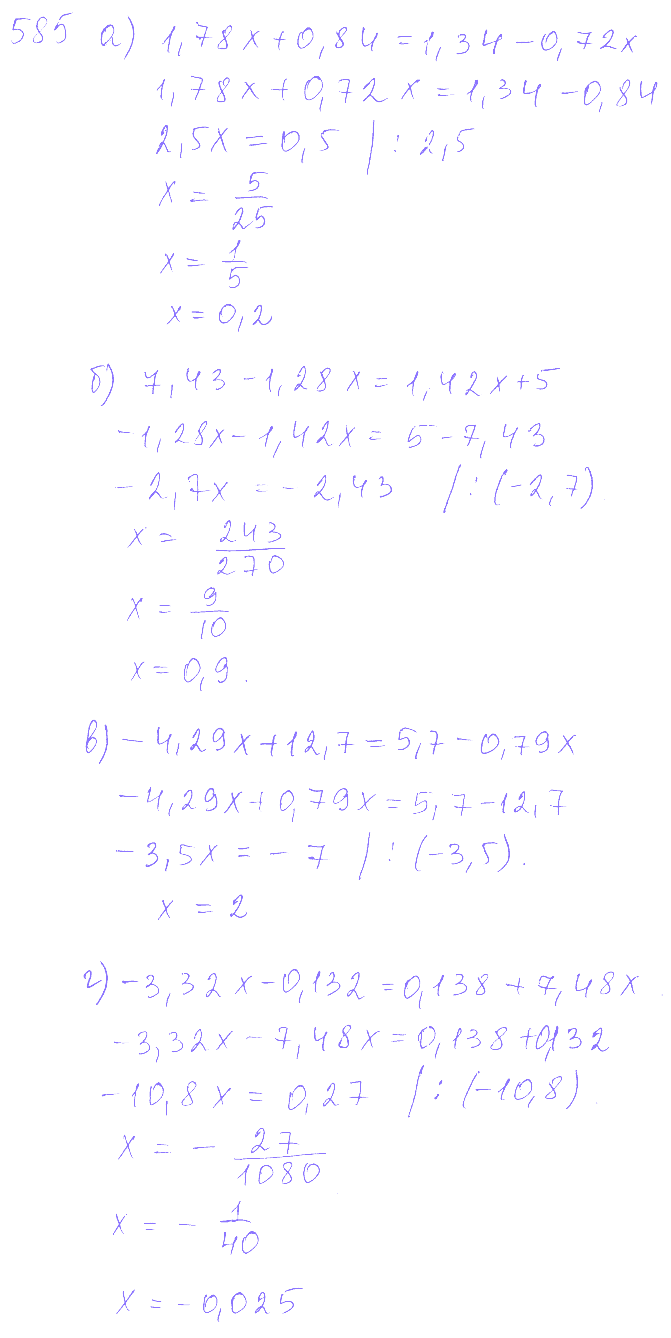 585 а) 1,78x+0,84=1,34-0,72x
1,78x+0,72x=1,34-0,84
2,5x=0,5 |:2,5
x = 5/25
x = 1/5
x=0,2
б) 7,43-1,28x=1,42x+5
-1,28x-1,42x=5-7,43
-2,7x=-2,43 |:(-2,7)
x = 243/270
x = 9/10
x=0,9.
в) -4,29x+12,7=5,7-0,79x
-4,29x+0,79x=5,7-12,7
-3,5x=-7 |:(-3,5).
x = 2
г) -3,32x-0,132=0,138+7,48x
-3,32x-7,48x=0,138+0,132
-10,8x=0,27 |:(-10,8)
x = - 27/1080
x = - 1/40
x=-0,025